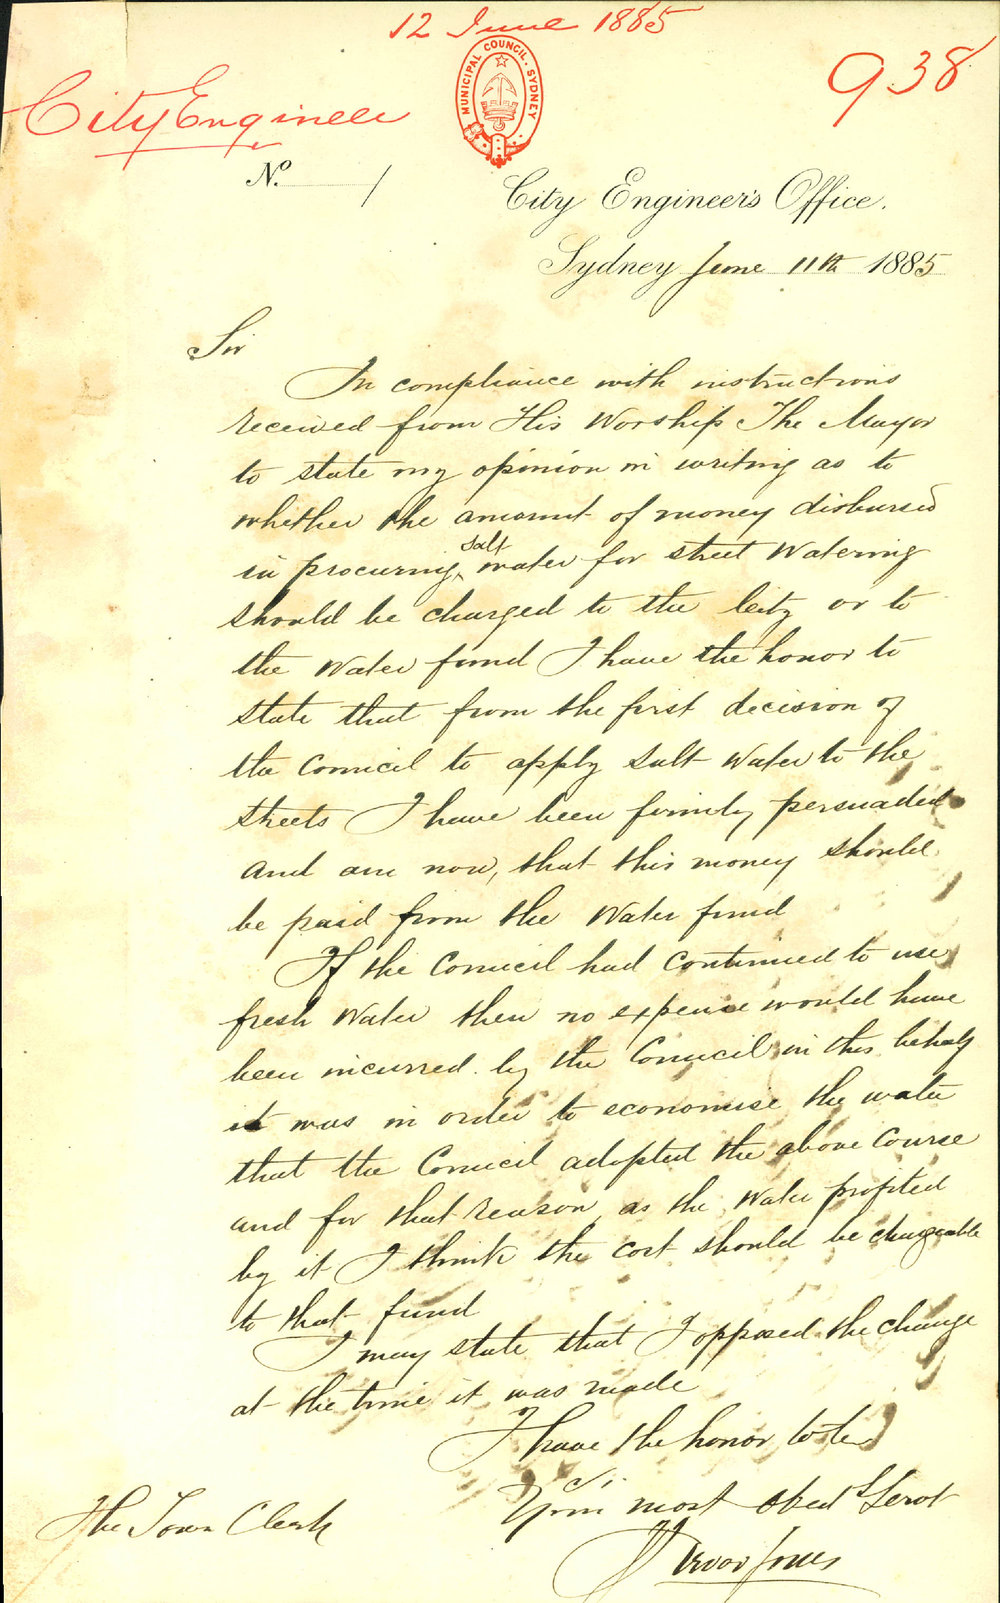 12 June 1885
MUNICIPAL COUNCIL. SYDNEY
938
City Engineer
No. 1
City Engineer's Office.
Sydney June 11th 1885
Sir
In compliance with instructions
received from His Worship The Mayor
to state my opinion in writing as to
whether the amount of money disbursed
salt
in procuring ^ water for street Watering
should be charged to the City or to
the Water fund I have the honor to
state that from the first decision of
the Council to apply Salt Water to the
streets I have been firmly persuaded
and am now, that this money should
be paid from the Water fund
If the Council had continued to use
fresh Water then no expense would have
been incurred by the Council in this behalf
it was in order to economise the water
that the Council adopted the above Course
and for that reason, as the Water profited
by it I think the cost should be chargeable
to that fund
I may state that I opposed the change
at the time it was made
I have the honor to be
Sir
Your most obed Servt
Trevor Jones
The Town Clerk